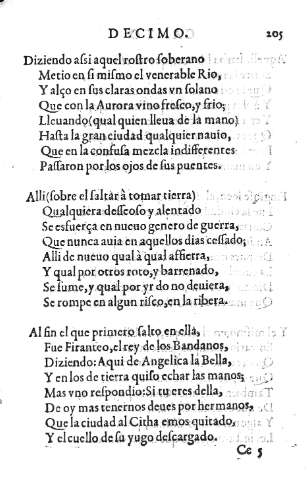 DECIMO. 205
Diziendo assi aquel rostro soberano
Metio en si mismo el venerable Rio,
Y alço en sus claras ondas vn solano
Que con la Aurora vino fresco, y frio;
Lleuando (qual quien lleua de la mano)
Hasta la gran ciudad qualquier nauio,
Que en la confusa mezcla indifferentes
Passaron por los ojos de sus puentes.
Alli (sobre el saltar à tomar tierra)
Qualquiera desseoso y alentado
Se esfuerça en nueuo genero de guerra,
Que nunca auia en aquellos dias cessado;
Alli de nueuo qual à qual affierra,
Y qual por otros roto, y barrenado,
Se sume, y qual por yr do no deuiera,
Se rompe en algun risco, en la ribera.
Al fin el que primero salto en ella,
Fue Firanteo, el rey de los Bandanos,
Diziendo: Aqui de Angelica la Bella,
Y en los de tierra quiso echar las manos;
Mas vno respondio: Si tu eres della,
De oy mas tenernos deues por hermanos,
Que la ciudad al Citha emos quitado,
Y el cuello de su yugo descargado.
Cc 5